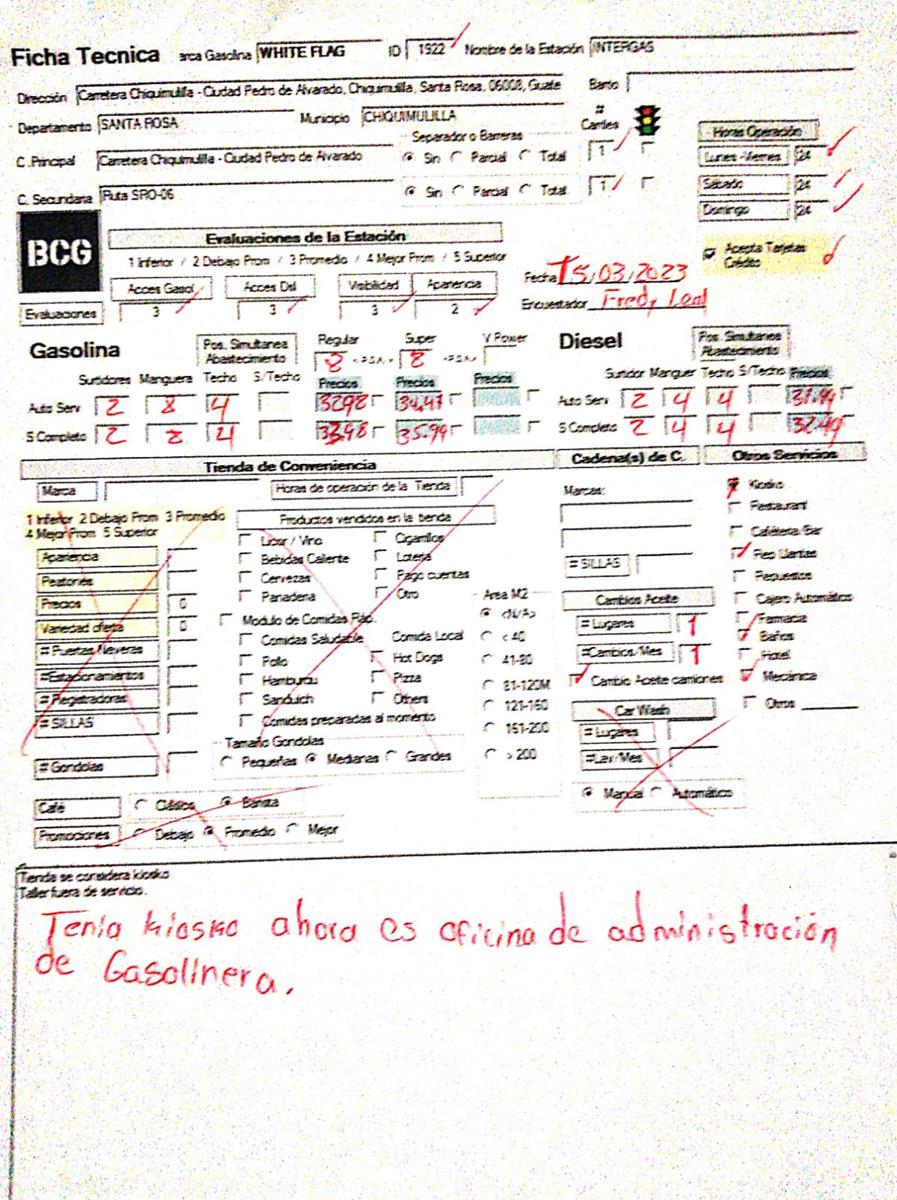 Ficha Tecnica arca Gasolina WHITE FLAG ID 1922 Nombre de la Estación INTERGAS
Dirección Carretera Chiquimulilla - Ciudad Pedro de Alvarado, Chiquimulilla, Santa Rosa, 06008, Guate Barrio
Departamento SANTA ROSA Municipio CHIQUIMULILLA # Carriles
Separador o Barreras Horas Operación
C .Principal Carretera Chiquimulilla - Ciudad Pedro de Alvarado Sin Parcial Total 1 Lunes -Viernes 24
C. Secundaria Ruta SRO-06 Sin Parcial Total 1 Sábado 24
Domingo 24
BCG Evaluaciones de la Estación
1 Inferior / 2 Debajo Prom / 3 Promedio / 4 Mejor Prom / 5 Superior
Acepta Tarjetas Crédito
Fecha 15/03/2023
Acces Gasol Acces Dsl Visibilidad Apariencia
Encuestador Fredy Leal
Evaluaciones 3 3 3 2
Gasolina Pos. Simultanea Abastecimiento Regular 8 Super 8 V Power
Diesel Pos. Simultanea Abastecimiento
Surtidores Manguera Techo S/Techo Precios Precios Precios
Surtidor Manguer Techo S/Techo Precios
Auto Serv 2 8 4 32.98 34.47
Auto Serv 2 4 4 31.99
S Completo 2 8 4 33.98 35.99
S Completo 2 4 4 32.49
Tienda de Conveniencia Cadena(s) de C. Otros Servicios
Marca Horas de operación de la Tienda
1 Inferior 2 Debajo Prom 3 Promedio
4 Mejor Prom 5 Superior
Apariencia
Peatones
Precios 0
Variedad oferta 0
# Puertas Neveras
#Estacionamientos
# Registradoras
# SILLAS
# Gondolas
Productos vendidos en la tienda
Licor / Vino Cigarrillos
Bebidas Caliente Loteria
Cervezas Pago cuentas
Panaderia Otro
Modulo de Comidas Ráp.
Comidas Saludable Comida Local
Pollo Hot Dogs
Hamburgu Pizza
Sanduich Others
Comidas preparadas al momento
Tamaño Gondolas
Pequeñas Medianas Grandes
Area M2
<N/A>
< 40
41-80
81-120M
121-160
161-200
> 200
Marcas:
# SILLAS
Cambios Aceite
# Lugares 1
#Cambios/Mes 1
Cambio Aceite camiones
Car Wash
# Lugares
#Lav/Mes
Manual Automático
Kiosko
Restaurant
Cafeteria/Bar
Rep Llantas
Repuestos
Cajero Automático
Farmacia
Baños
Hotel
Mecánica
Otros
Café Clásico Barista
Promociones Debajo Promedio Mejor
Tienda se considera kiosko
Taller fuera de servicio.
Tenia kiosko ahora es oficina de administración
de Gasolinera.